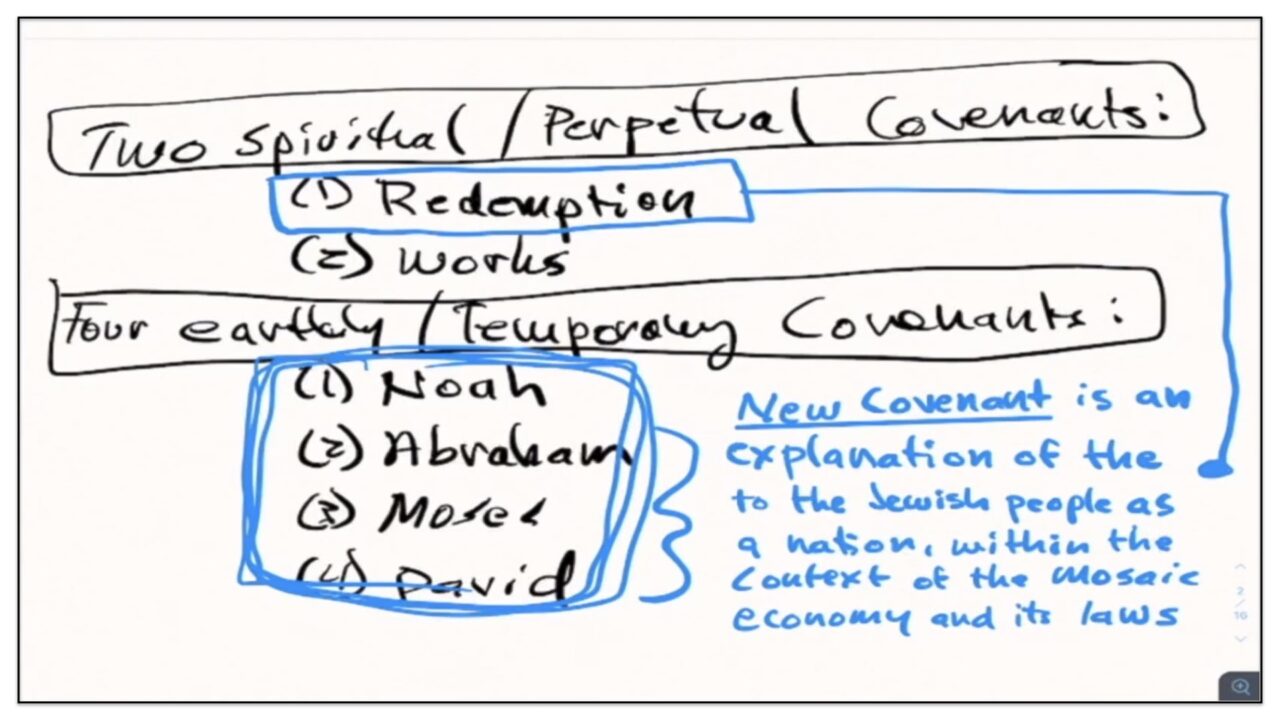 Two Spiritual / Perpetual Covenants:
(1) Redemption
(2) Works
Four earthly / Temporary Covenants:
(1) Noah
(2) Abraham
(3) Moses
(4) David
New Covenant is an
explanation of the
to the Jewish people as
a nation, within the
context of the Mosaic
economy and its laws
2
/
16